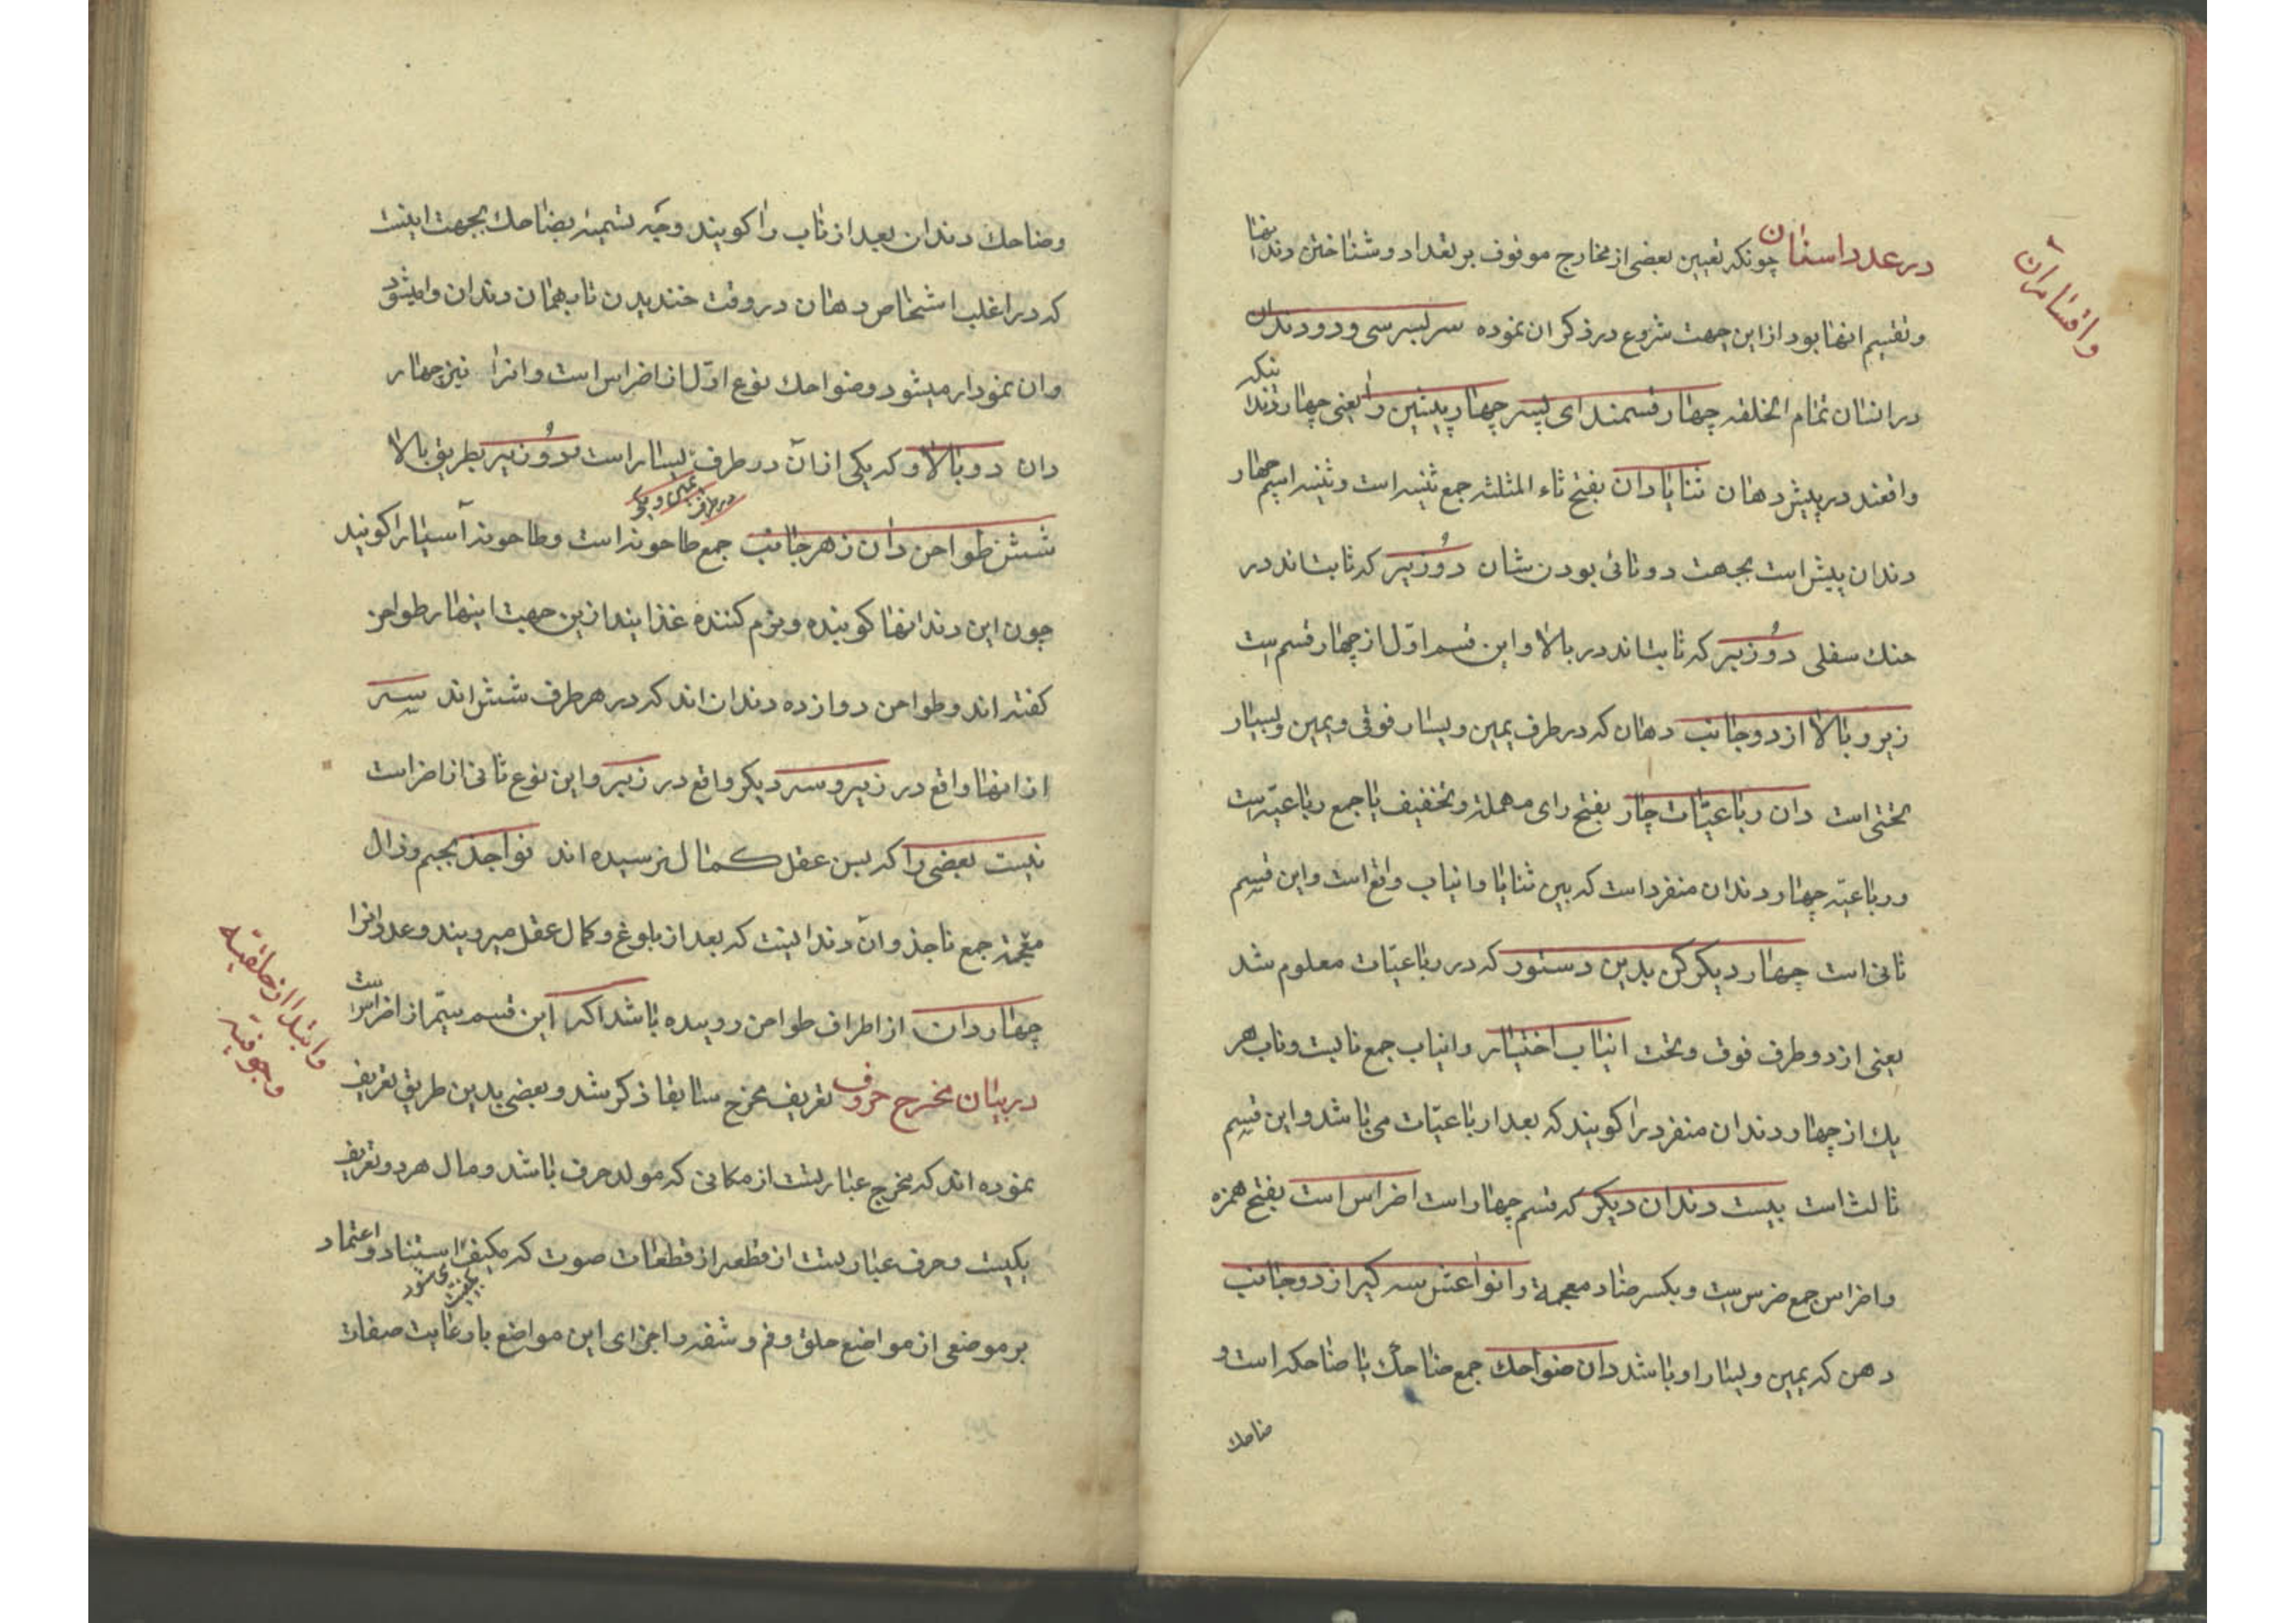 در عدد اسنان چونکه تعیین بعضی از مخارج موقوف بر تعداد و شناختن دندانها
واقسام آن
وتقسیم انها بود از این جهت شروع در ذکر ان نموده سر بسر سی و دو دندان
در انسان تمام الخلقه چهار قسمند ای پسر چهار پیشین را یعنی چهار دندانیکه
واقعند در پیش دهان ثنایا دان بفتح ثاء المثلثه جمع ثنیه است و ثنیه اسم چهار
دندان پیش است بجهت دوتائی بودن شان دو زیر که ثابت‌اند در
حنك سفلی دو زبر که ثابت‌اند در بالا و این قسم اوّل از چهار قسم ست
زیر و بالا از دو جانب دهان که در طرف یمین و یسار فوقی و یمین و یسار
تحتی است دان رباعیّات چار بفتح رای مهمله و تخفیف یا جمع رباعیّه است
و رباعیّه چهار دندان منفرد است که بین ثنایا و انیاب واقع است و این قسم
ثانی است چهار دیکر کن بدین دستور که در رباعیّات معلوم شد
یعنی از دو طرف فوق و تحت انیاب اختیار و انیاب جمع نابست و ناب هر
یك از چهار دندان منفرد را کویند که بعد از رباعیّات می باشد و این قسم
ثالث است بیست دندان دیکر که قسم چهار است اضراس است بفتح همزه
و اضراس جمع ضرس ست و بکسر ضاد معجمة و انواعش سه کیر از دو جانب
دهن که یمین و یسار او باشد دان ضواحك جمع ضاحك یا ضاحکه است و
ضاحك
وضاحك دندان بعد از ناب را کویند و جه تسمیهٔ بضاحك بجهت اینست
که در اغلب اشخاص دهان در وقت خندیدن تا بهمان دندان وامیشود
وان نمودار میشود و ضواحك نوع اوّل از اضراس است و انرا نیز چهار
دان دو بالا و که یکی از ان در طرف یسار است دو زیر بطریق بالا
در طرف یمین و یکی
شش طواحن دان ز هر جانب جمع طاحونه است و طاحونه آسیا را کویند
چون این دندانها کوبنده و نرم کننده غذایند ازین جهت اینها را طواحن
کفته اند و طواحن دوازده دندان اند که در هر طرف شش اند سه
از انها واقع در زیر و سه دیکر واقع در زبر و این نوع ثانی از اضراست
نیست بعضی را که بسن عقل کمال نرسیده اند نواجذ بجیم و ذال
معجمه جمع ناجذ و آن دندانیست که بعد از بلوغ و کمال عقل میرویند و عدد انرا
چهار دان از اطراف طواحن روییده باشد اکر این قسم سیّم از اضراس است
در بیان مخرج حروف تعریف مخرج سابقا ذکر شد و بعضی بدین طریق تعریف
وابتدا از حلقیه
وجوفیه
نموده اند که مخرج عبارتست از مکانی که مولد حرف باشد و مال هر دو تعریف
یکیست و حرف عبارتست از قطعه از قطعات صوت که مکیف استناد و اعتماد
بر موضعی از مواضع حلق و فم و شفه و اجزای این مواضع با رعایت صفات